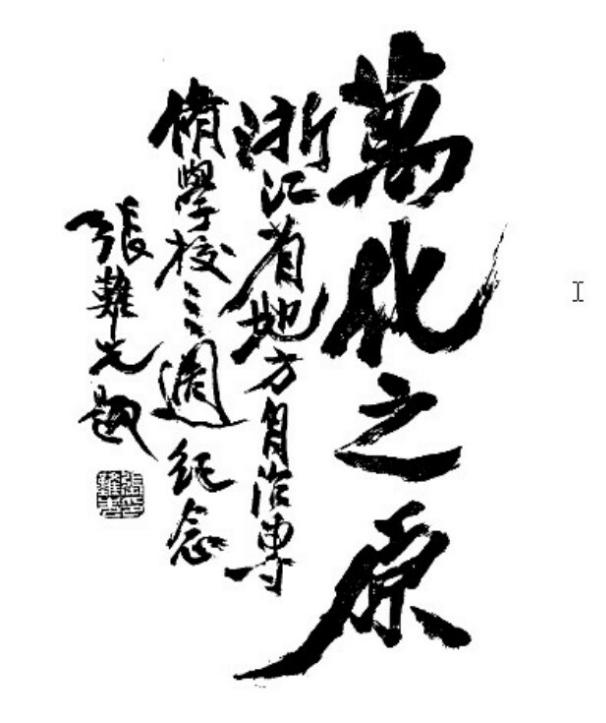 萬化之原
浙江省地方自治專
脩學校三週紀念
張難先題